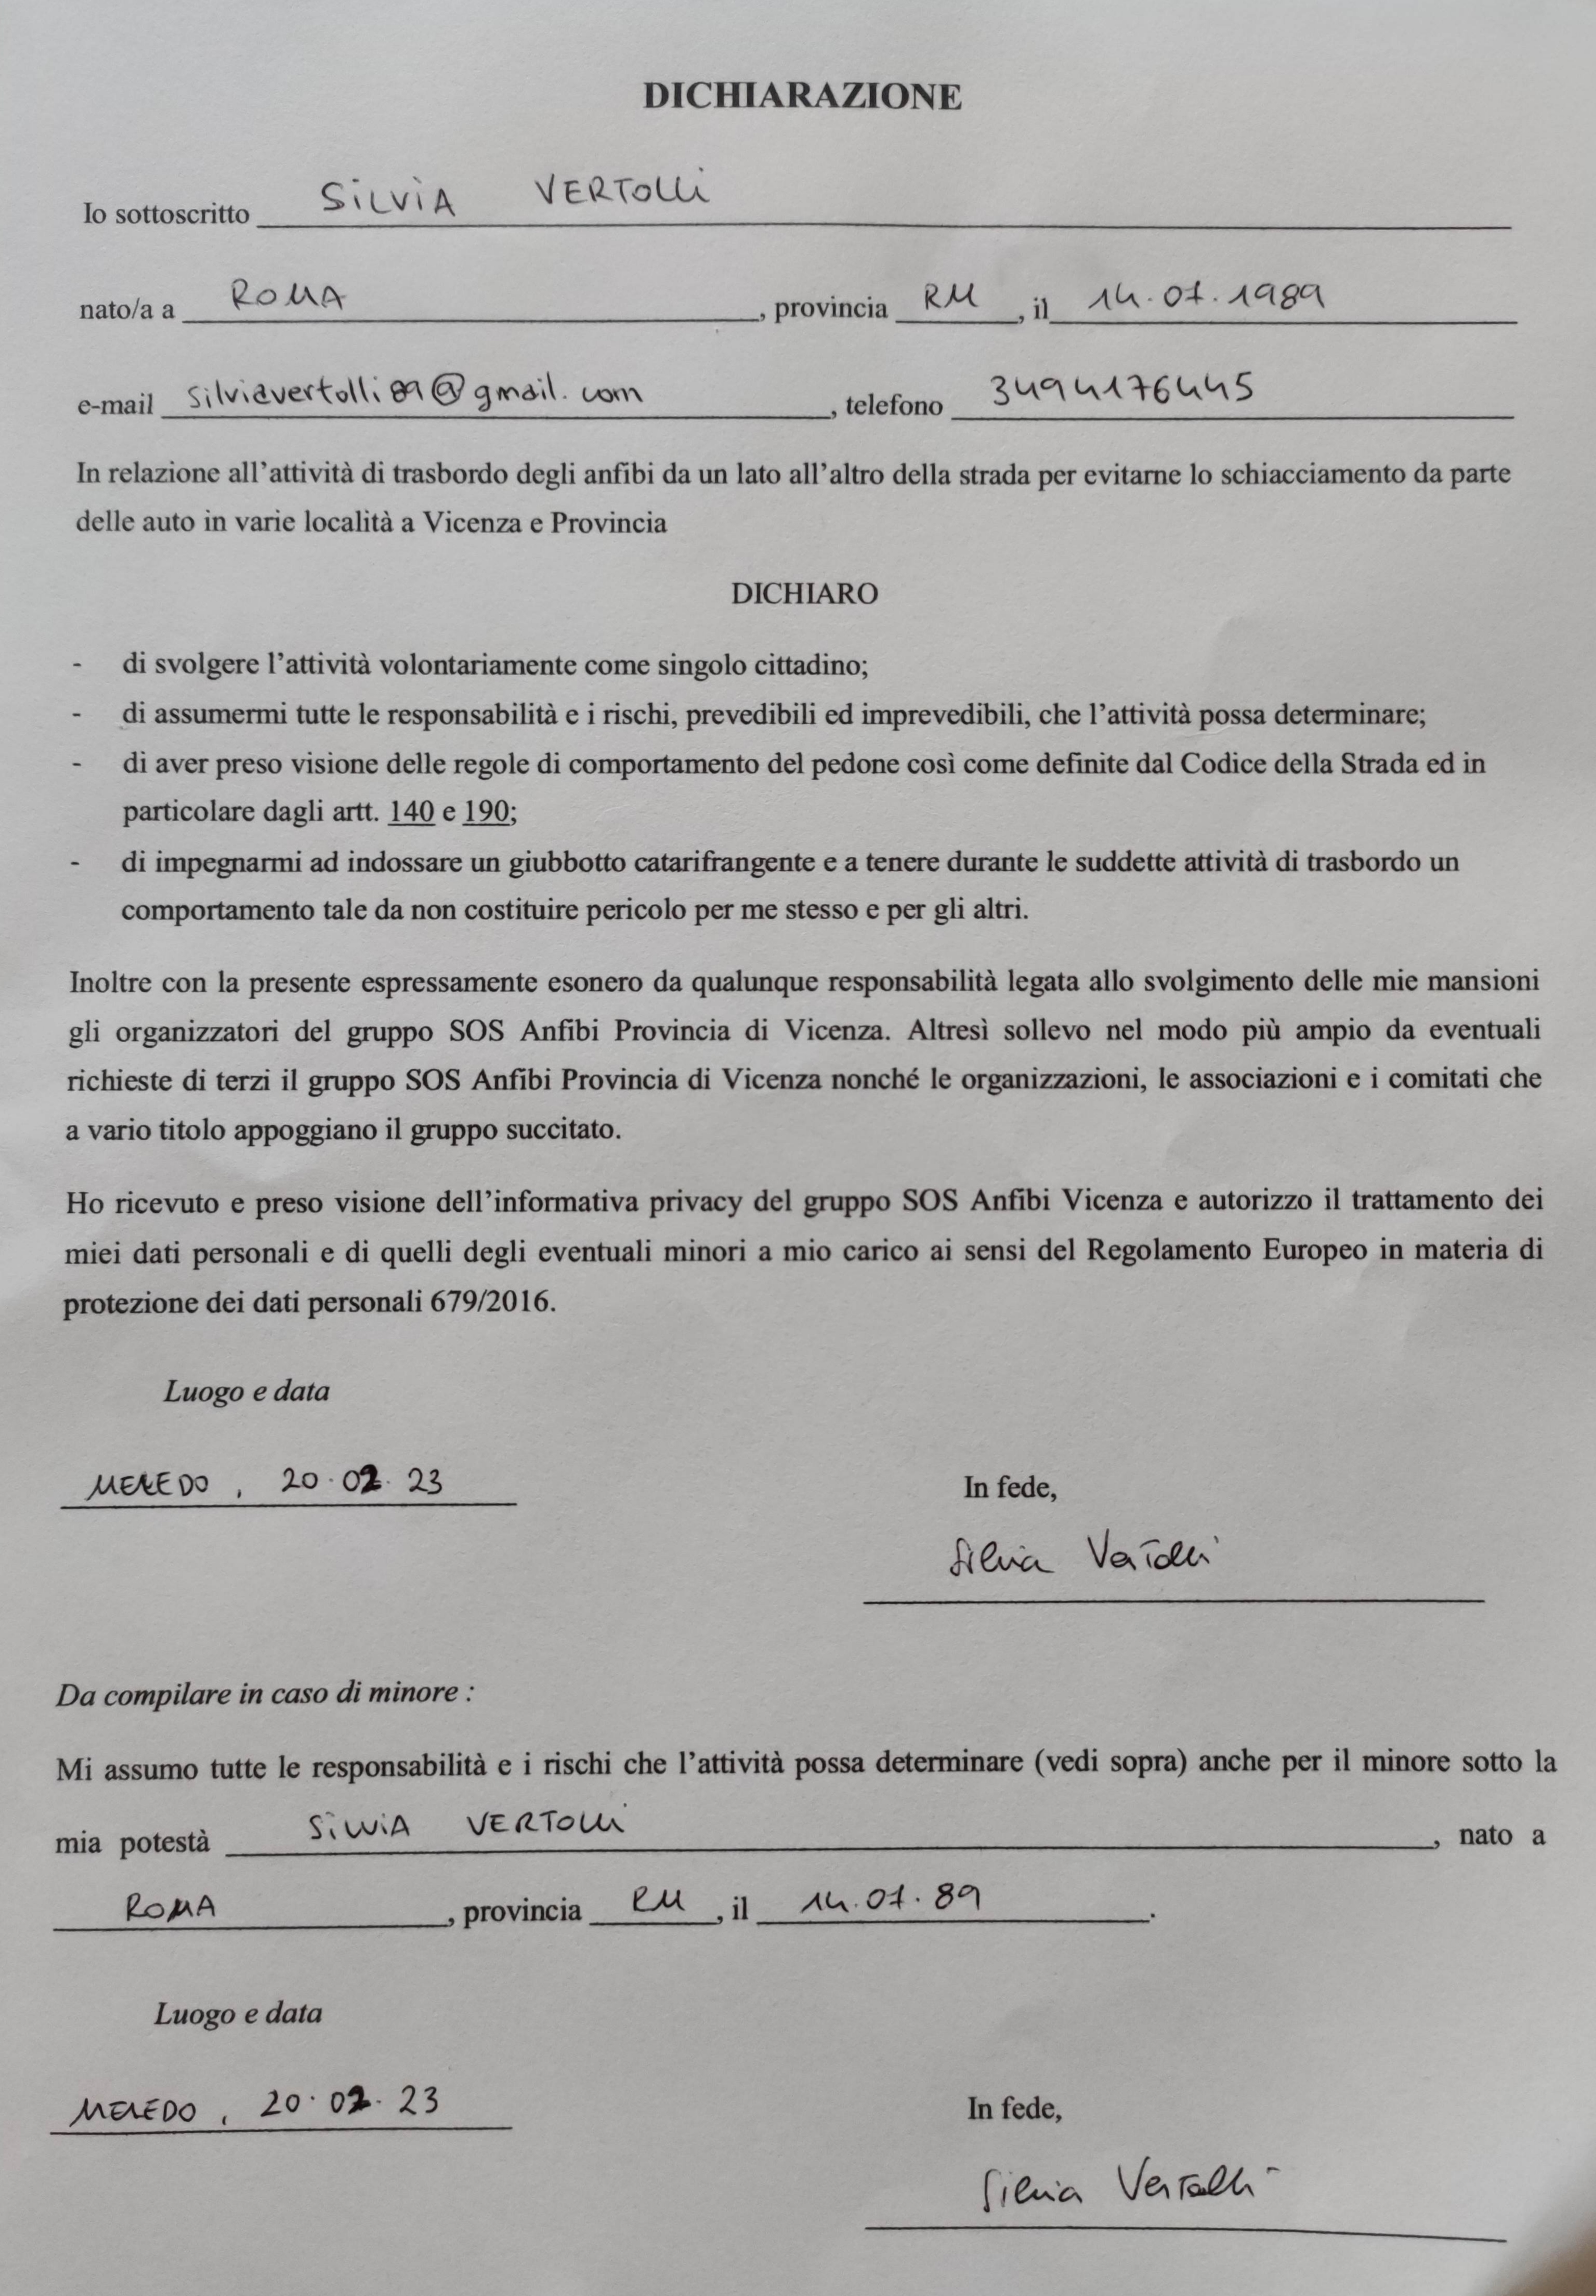 DICHIARAZIONE
Io sottoscritto SILVIA VERTOLLI
nato/a a ROMA, provincia RM, il 14.07.1989
e-mail silviavertolli89@gmail.com, telefono 3494176445
In relazione all'attività di trasbordo degli anfibi da un lato all'altro della strada per evitarne lo schiacciamento da parte
delle auto in varie località a Vicenza e Provincia
DICHIARO
- di svolgere l'attività volontariamente come singolo cittadino;
- di assumermi tutte le responsabilità e i rischi, prevedibili ed imprevedibili, che l'attività possa determinare;
- di aver preso visione delle regole di comportamento del pedone così come definite dal Codice della Strada ed in
particolare dagli artt. 140 e 190;
- di impegnarmi ad indossare un giubbotto catarifrangente e a tenere durante le suddette attività di trasbordo un
comportamento tale da non costituire pericolo per me stesso e per gli altri.
Inoltre con la presente espressamente esonero da qualunque responsabilità legata allo svolgimento delle mie mansioni
gli organizzatori del gruppo SOS Anfibi Provincia di Vicenza. Altresì sollevo nel modo più ampio da eventuali
richieste di terzi il gruppo SOS Anfibi Provincia di Vicenza nonché le organizzazioni, le associazioni e i comitati che
a vario titolo appoggiano il gruppo succitato.
Ho ricevuto e preso visione dell'informativa privacy del gruppo SOS Anfibi Vicenza e autorizzo il trattamento dei
miei dati personali e di quelli degli eventuali minori a mio carico ai sensi del Regolamento Europeo in materia di
protezione dei dati personali 679/2016.
Luogo e data
MELEDO, 20.02.23
In fede,
Silvia Vertolli
Da compilare in caso di minore :
Mi assumo tutte le responsabilità e i rischi che l'attività possa determinare (vedi sopra) anche per il minore sotto la
mia potestà SILVIA VERTOLLI, nato a
ROMA, provincia RM, il 14.07.89.
Luogo e data
MELEDO, 20.02.23
In fede,
Silvia Vertolli